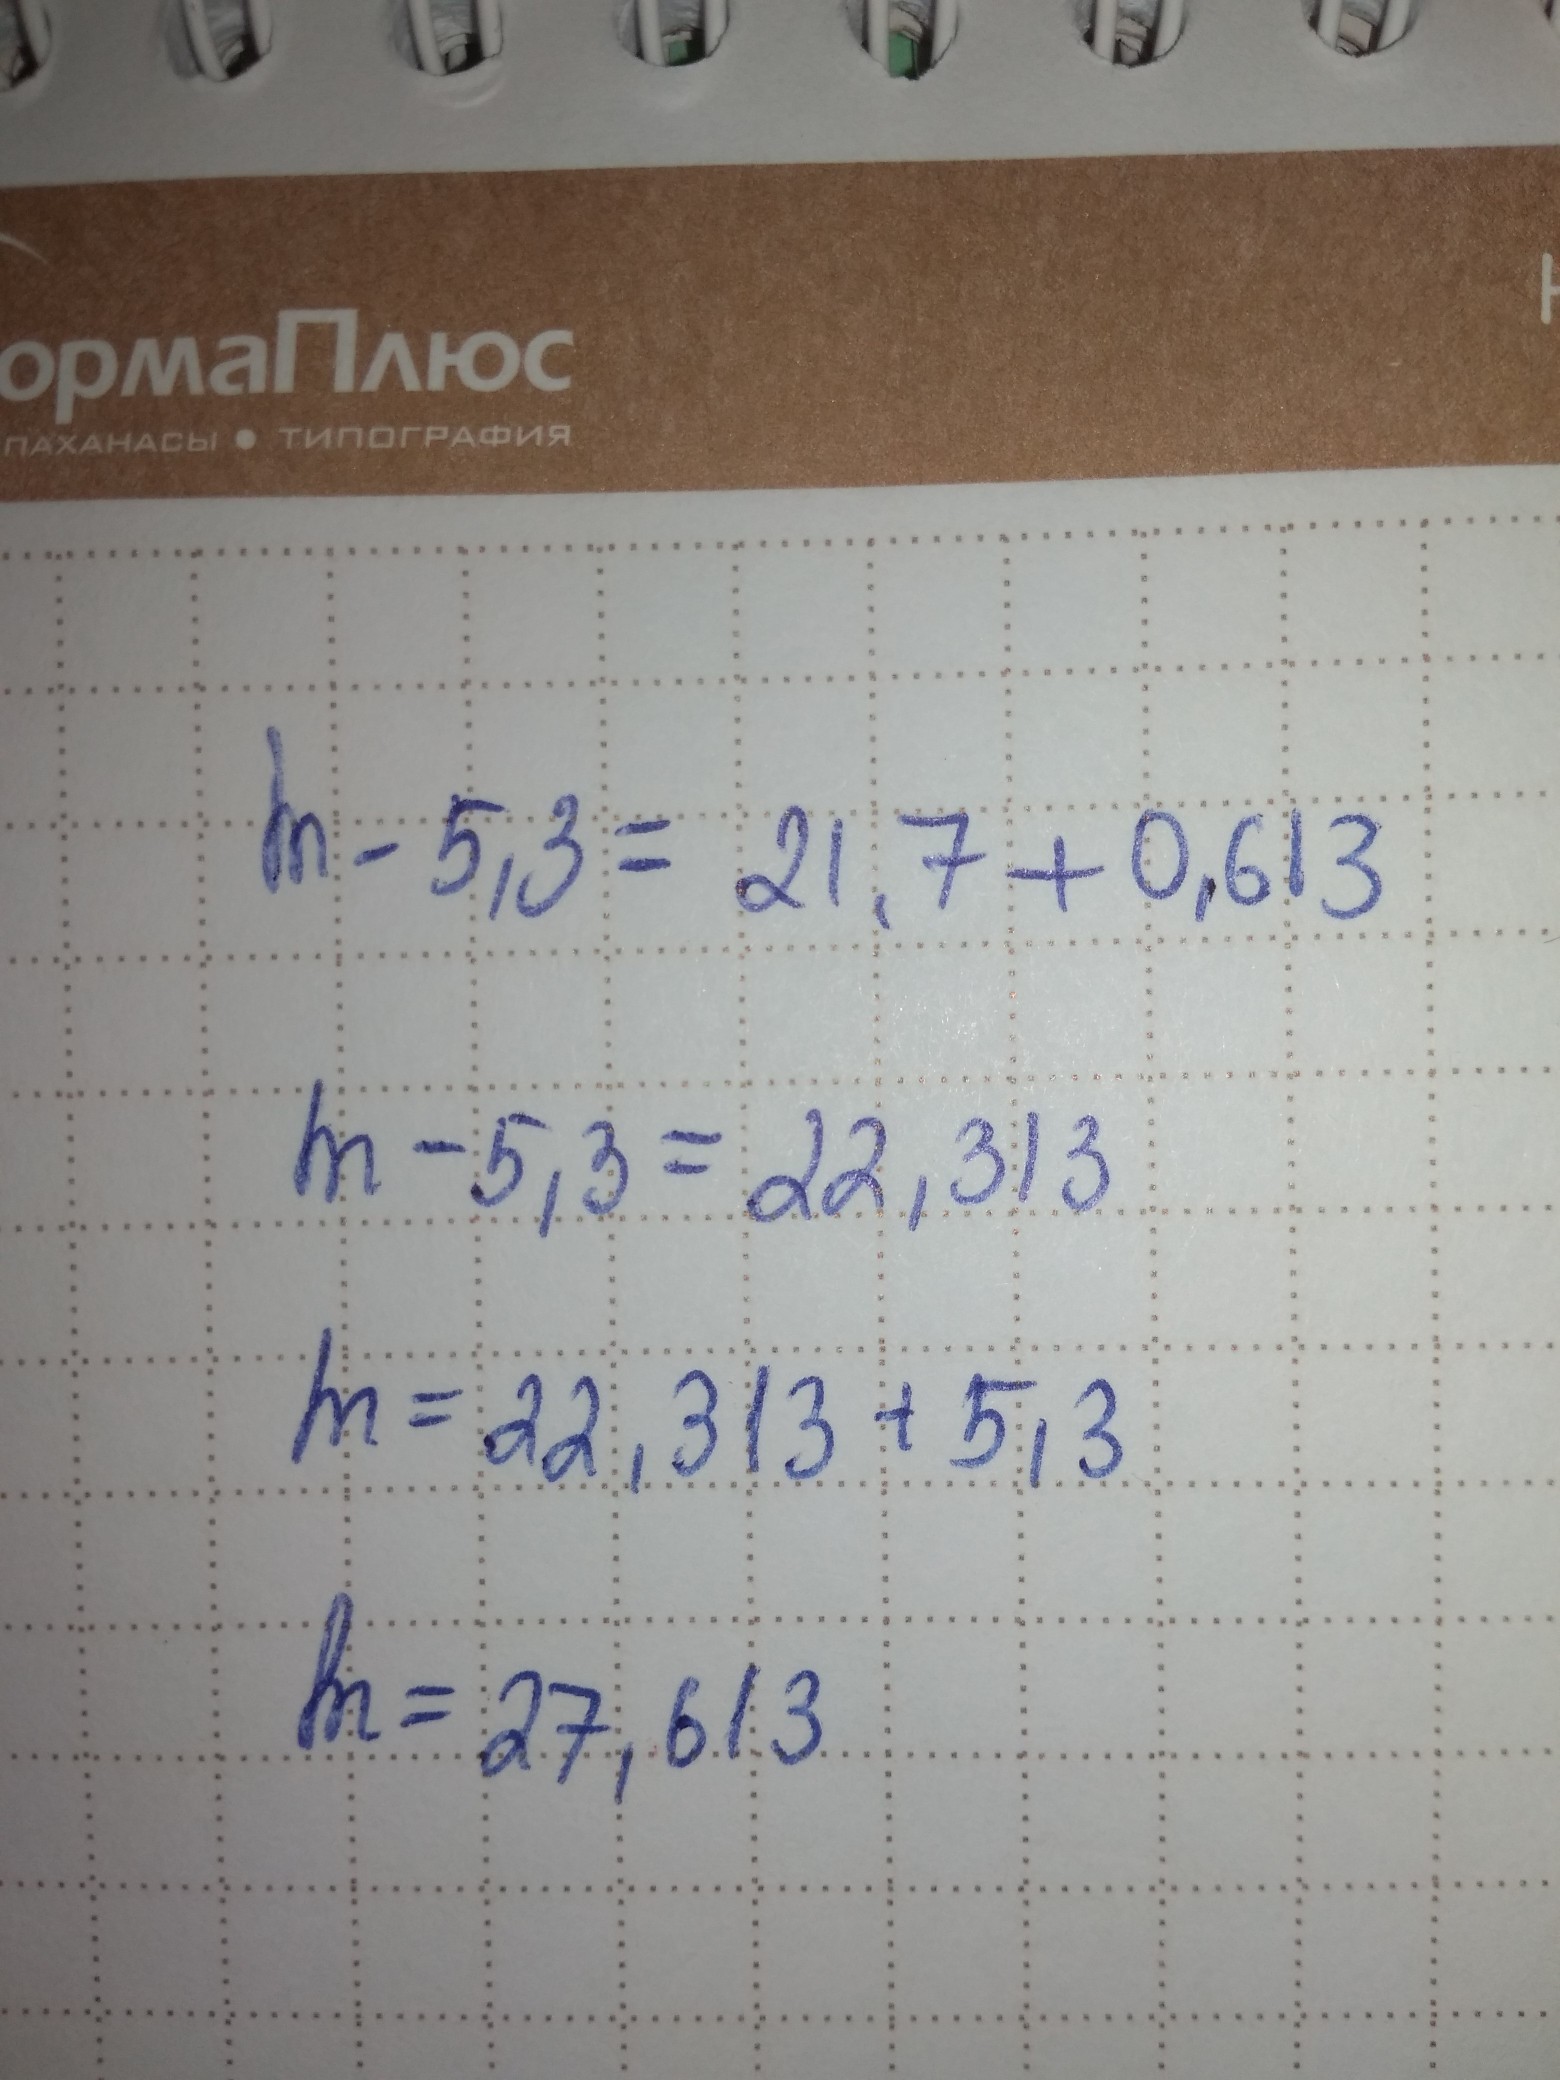 ормаПлюс
ПАХАНАСЫ • ТИПОГРАФИЯ
m - 5,3 = 21,7 + 0,613
m - 5,3 = 22,313
m = 22,313 + 5,3
m = 27,613